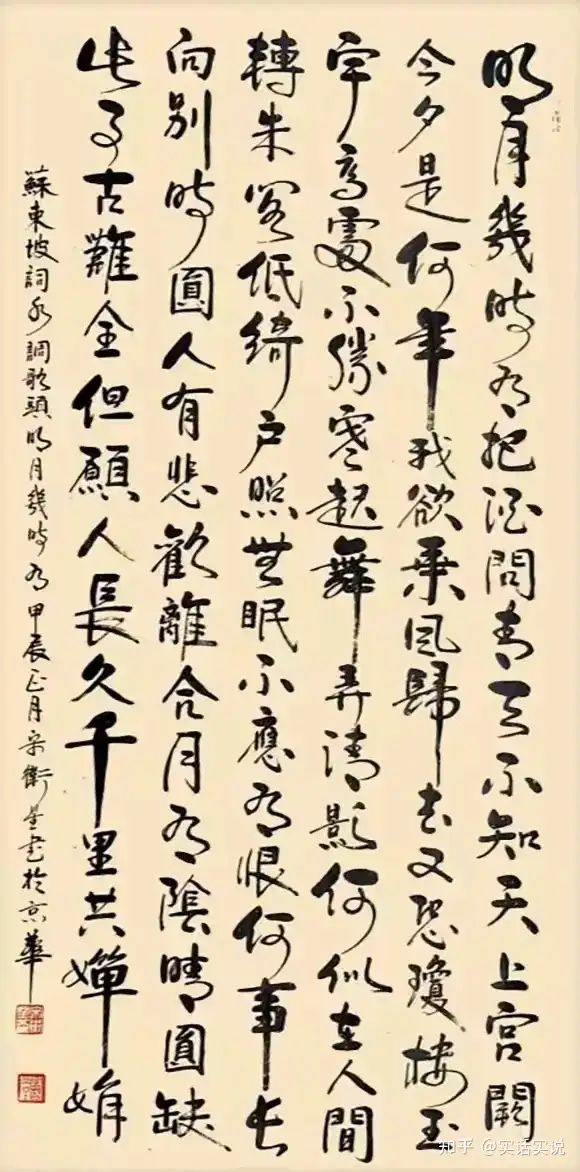 明月幾時有把酒問青天不知天上宮闕
今夕是何年我欲乘風歸去又恐瓊樓玉
宇高處不勝寒起舞弄清影何似在人間
轉朱閣低綺戶照無眠不應有恨何事長
向別時圓人有悲歡離合月有陰晴圓缺
此事古難全但願人長久千里共嬋娟
蘇東坡詞水調歌頭明月幾時有甲辰正月宋衛星書於京華
知乎 @实话实说